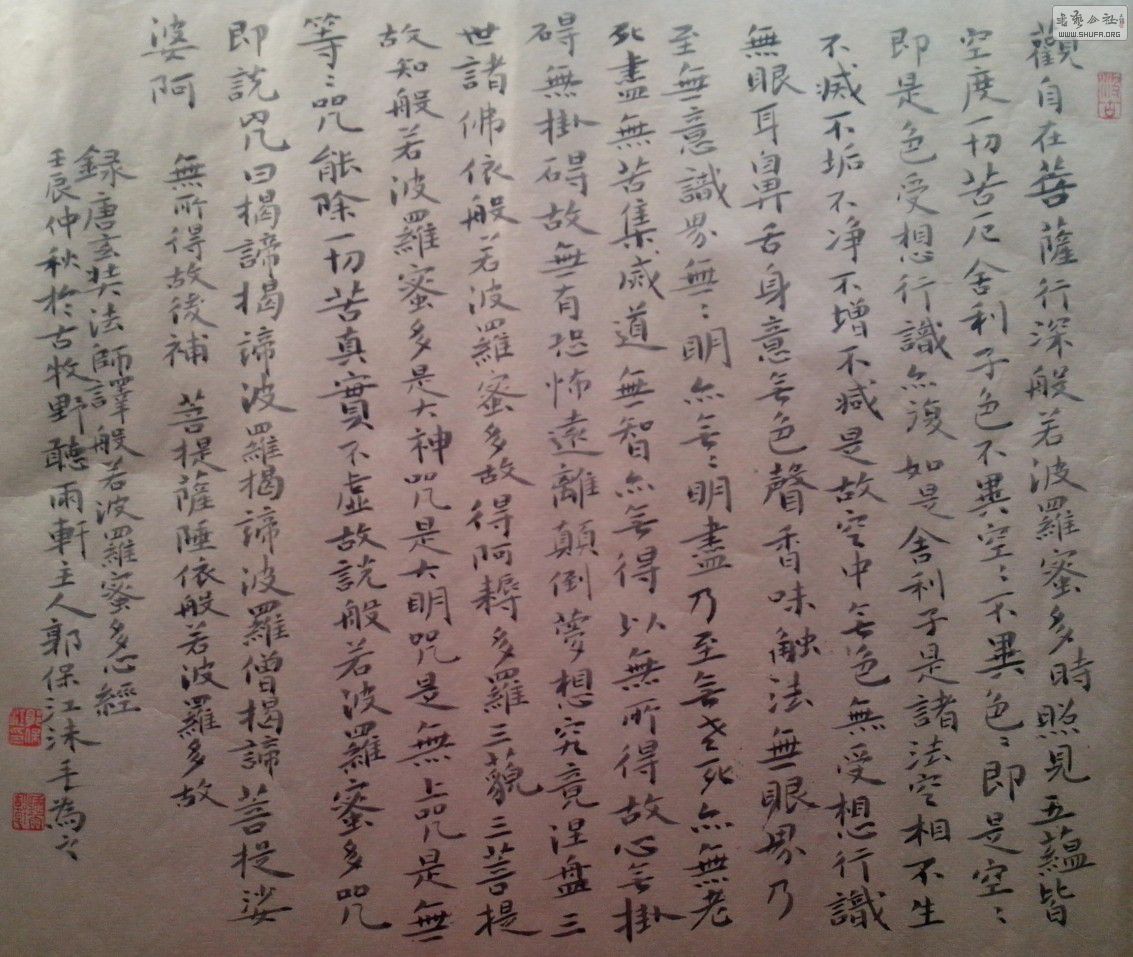 觀自在菩薩行深般若波羅蜜多時照見五蘊皆
空度一切苦厄舍利子色不異空〻不異色〻即是空〻
即是色受想行識亦復如是舍利子是諸法空相不生
不滅不垢不净不增不减是故空中无色無受想行識
無眼耳鼻舌身意无色聲香味触法無眼界乃
至無意識界無〻明亦无〻明盡乃至无老死亦無老
死盡無苦集滅道無智亦无得以無所得故心无掛
碍無掛碍故無有恐怖遠離顛倒夢想究竟涅盤三
世諸佛依般若波羅蜜多故得阿耨多羅三藐三菩提
故知般若波羅蜜多是大神咒是大明咒是無上咒是無
等〻咒能除一切苦真實不虛故說般若波羅蜜多咒
即說咒曰揭諦揭諦波羅揭諦波羅僧揭諦菩提娑
婆阿 無所得故後補 菩提薩陲依般若波羅多故
録唐玄奘法師譯般若波羅蜜多心經
壬辰仲秋於古牧野聽雨軒主人郭保江沫手為之
書藝公社
WWW.SHUFA.ORG